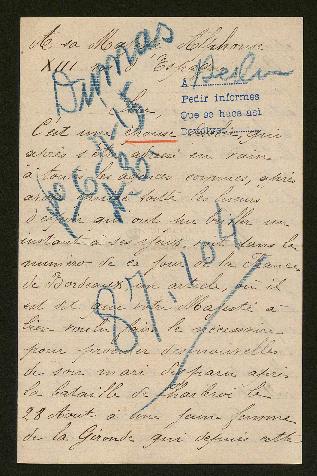 A sa Majesté Alphonse
XIII roi d'Espagne
Dumas
Berlin
A
Pedir informes
Que se haga así
Sire,
C'est une épouse qui
après s'être adressée en vain
à toutes les agences connues, après
avoir perdu toutes les lueurs
d'espoir qui ont pu briller un
instant à ses yeux, voit dans le
numéro de ce jour de la France
de Bordeaux un article, où il
est dit que votre Majesté a
bien voulu faire le nécessaire
pour procurer des nouvelles
de son mari disparu après
la bataille de Charleroi le
28 Août à une jeune femme
de la Gironde qui depuis cette
16-6-15
87.104